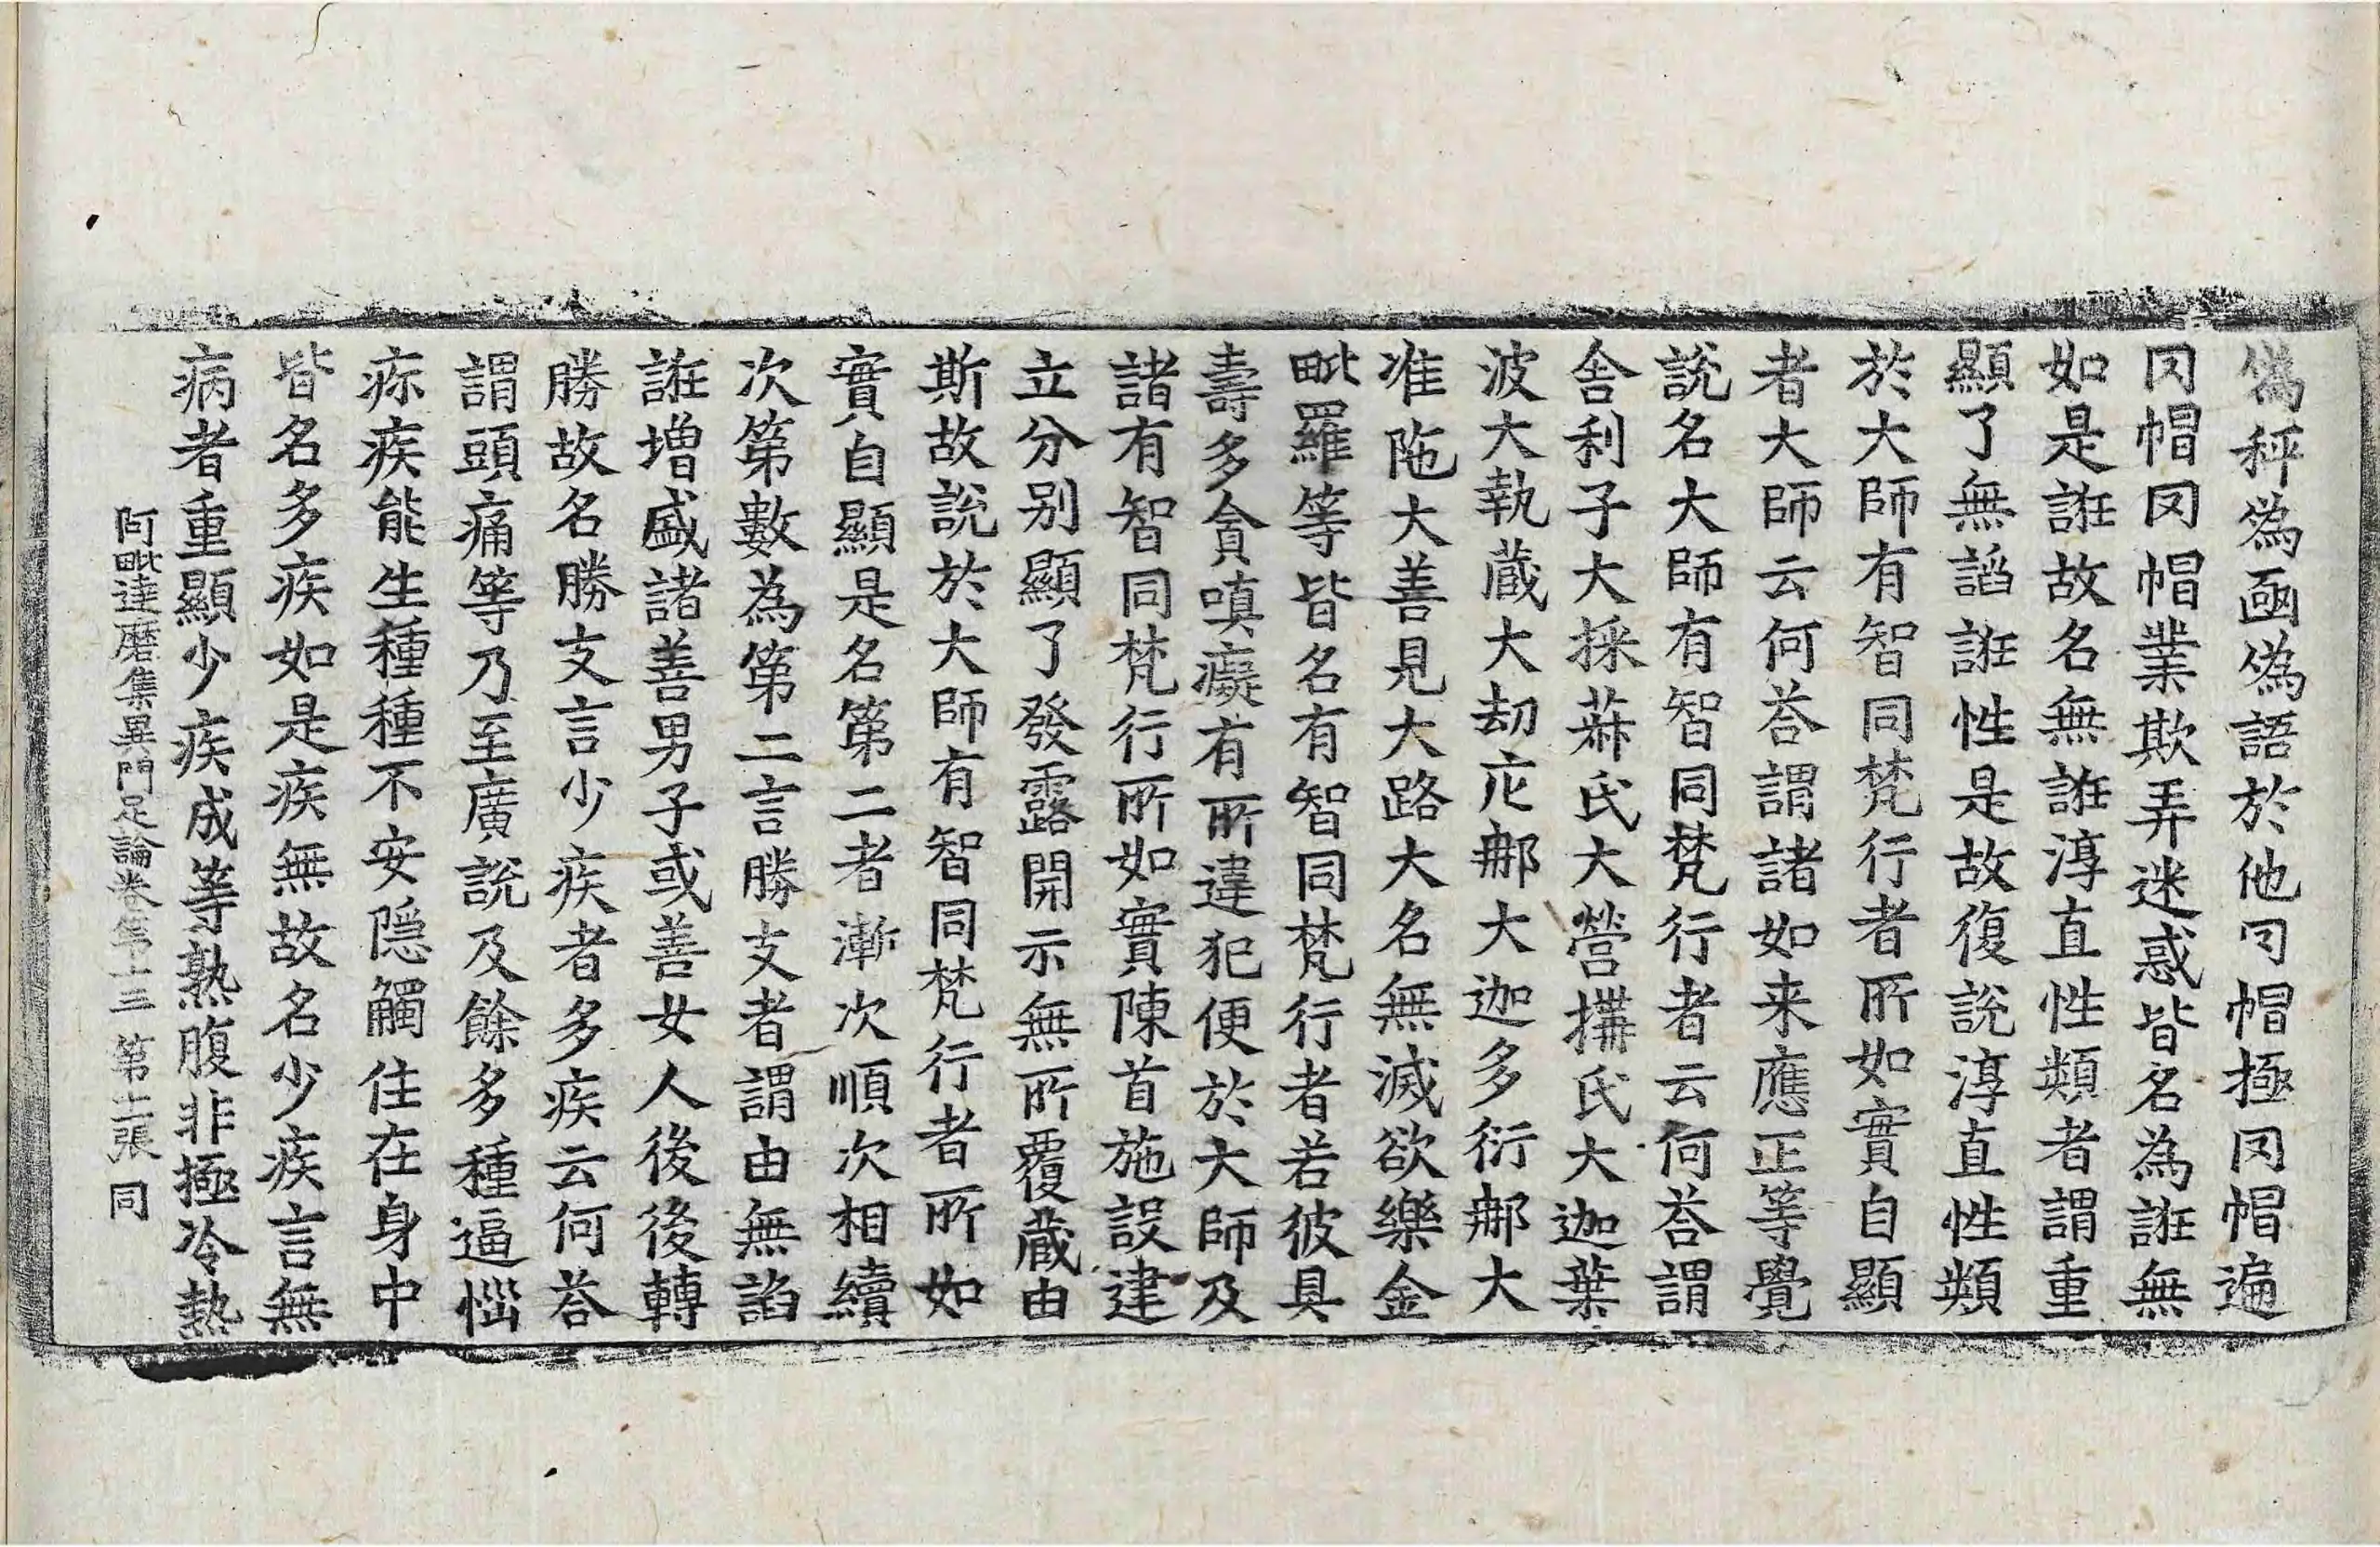 偽秤偽凾偽語於他冋帽極冋帽遍
冋帽冋帽業欺弄迷惑皆名為誑無
如是誑故名無誑淳直性類者謂重
顯了無諂誑性是故復說淳直性類
於大師有智同梵行者所如實自顯
者大師云何荅謂諸如来應正等覺
說名大師有智同梵行者云何荅謂
舍利子大採菻氏大營搆氏大迦葉
波大執藏大劫庀那大迦多衍那大
准陁大善見大路大名無滅欲樂金
毗羅等皆名有智同梵行者若彼具
壽多貪嗔癡有所違犯便於大師及
諸有智同梵行所如實陳首施設建
立分别顯了發露開示無所覆藏由
斯故說於大師有智同梵行者所如
實自顯是名第二者漸次順次相續
次第數為第二言勝支者謂由無諂
誑增盛諸善男子或善女人後後轉
勝故名勝支言少疾者多疾云何荅
謂頭痛等乃至廣說及餘多種逼惱
疹疾能生種種不安隱觸住在身中
皆名多疾如是疾無故名少疾言無
病者重顯少疾成等熟腹非極冷熱
阿毗達磨集異門足論卷第十三 第十二張 同